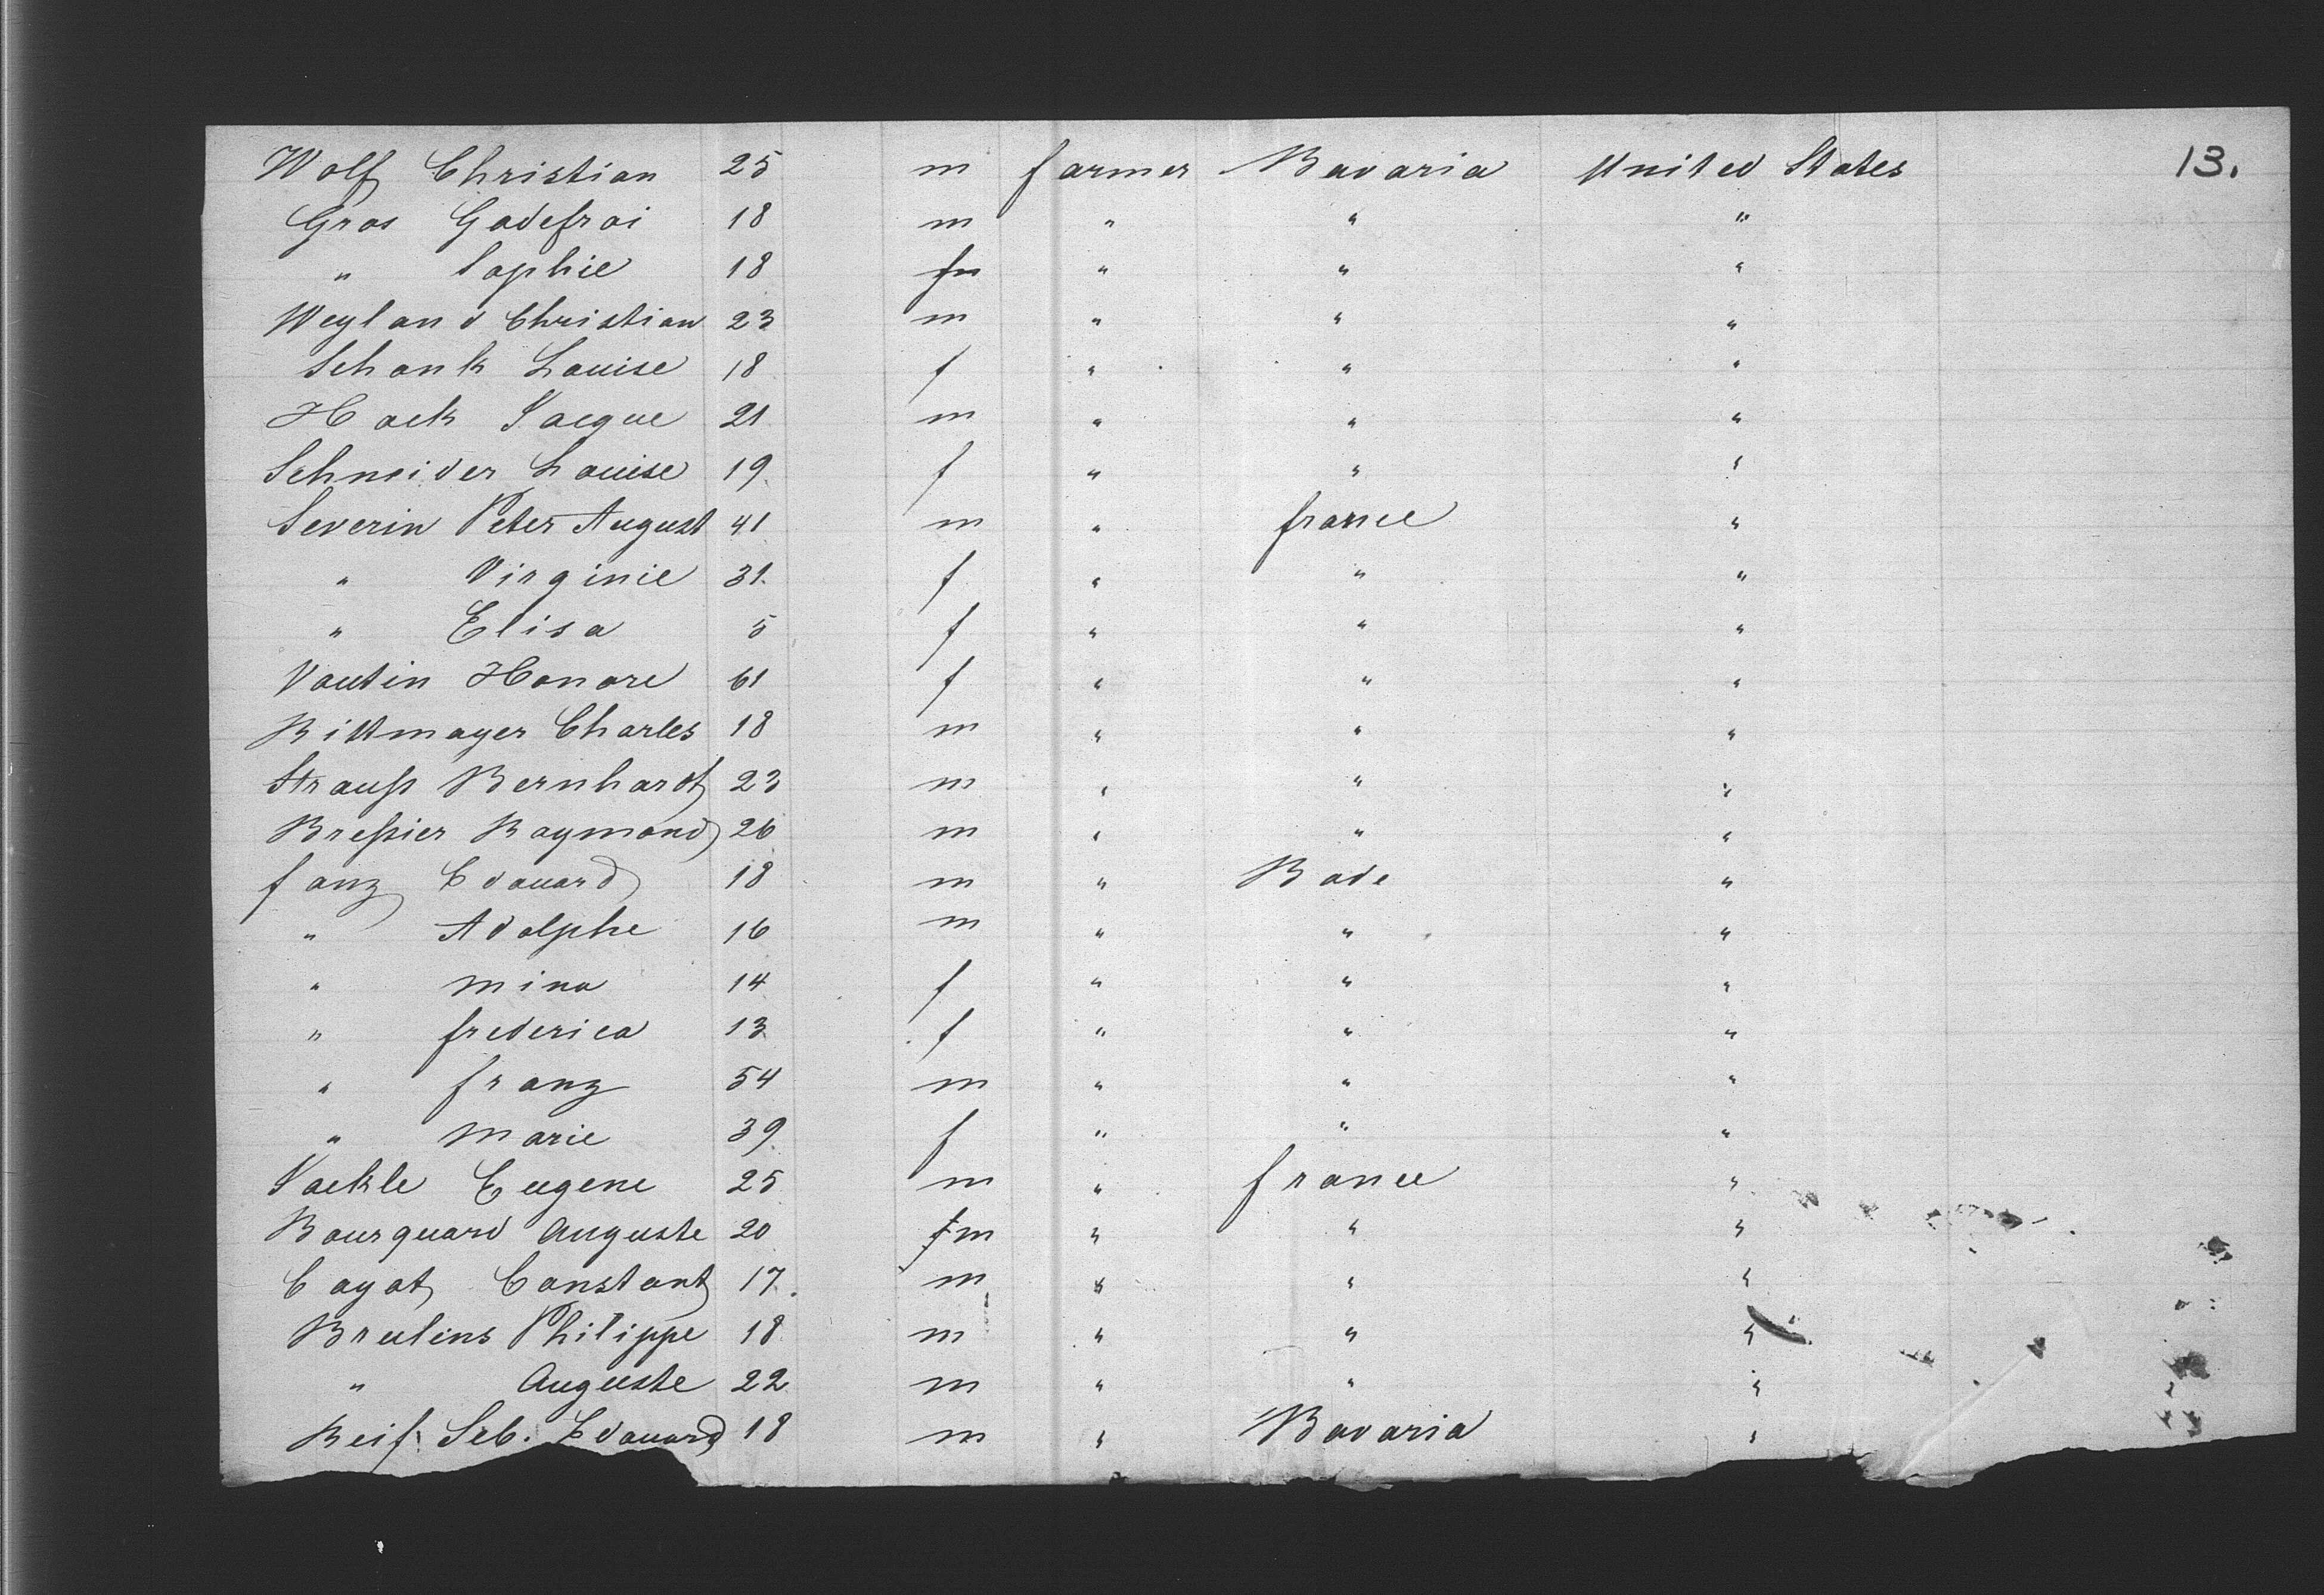 Wolf Christian 25 m farmer Bavaria United States 13.
Gros Godefroi 18 m " " "
" Sophie 18 f " " "
Weyland Christian 23 m " " "
Schank Louise 18 f " " "
Hock Jacque 21 m " " "
Schneider Louise 19 f " " "
Severin Peter August 41 m " france "
" Virginie 31 f " " "
" Elisa 5 f " " "
Vautin Honore 61 f " " "
Rittmayer Charles 18 m " " "
Strauß Bernhardt 23 m " " "
Breßier Raymond 26 m " " "
fanz Edouard 18 m " Bade "
" Adolphe 16 m " " "
" mina 14 f " " "
" frederica 13 f " " "
" franz 54 m " " "
" marie 39 f " " "
Jackle Eugene 25 m " france "
Bourquard Auguste 20 m " " "
Cayot Constant 17 m " " "
Brulins Philippe 18 m " " "
" Auguste 22 m " " "
Reif Seb. Edouard 18 m " Bavaria "